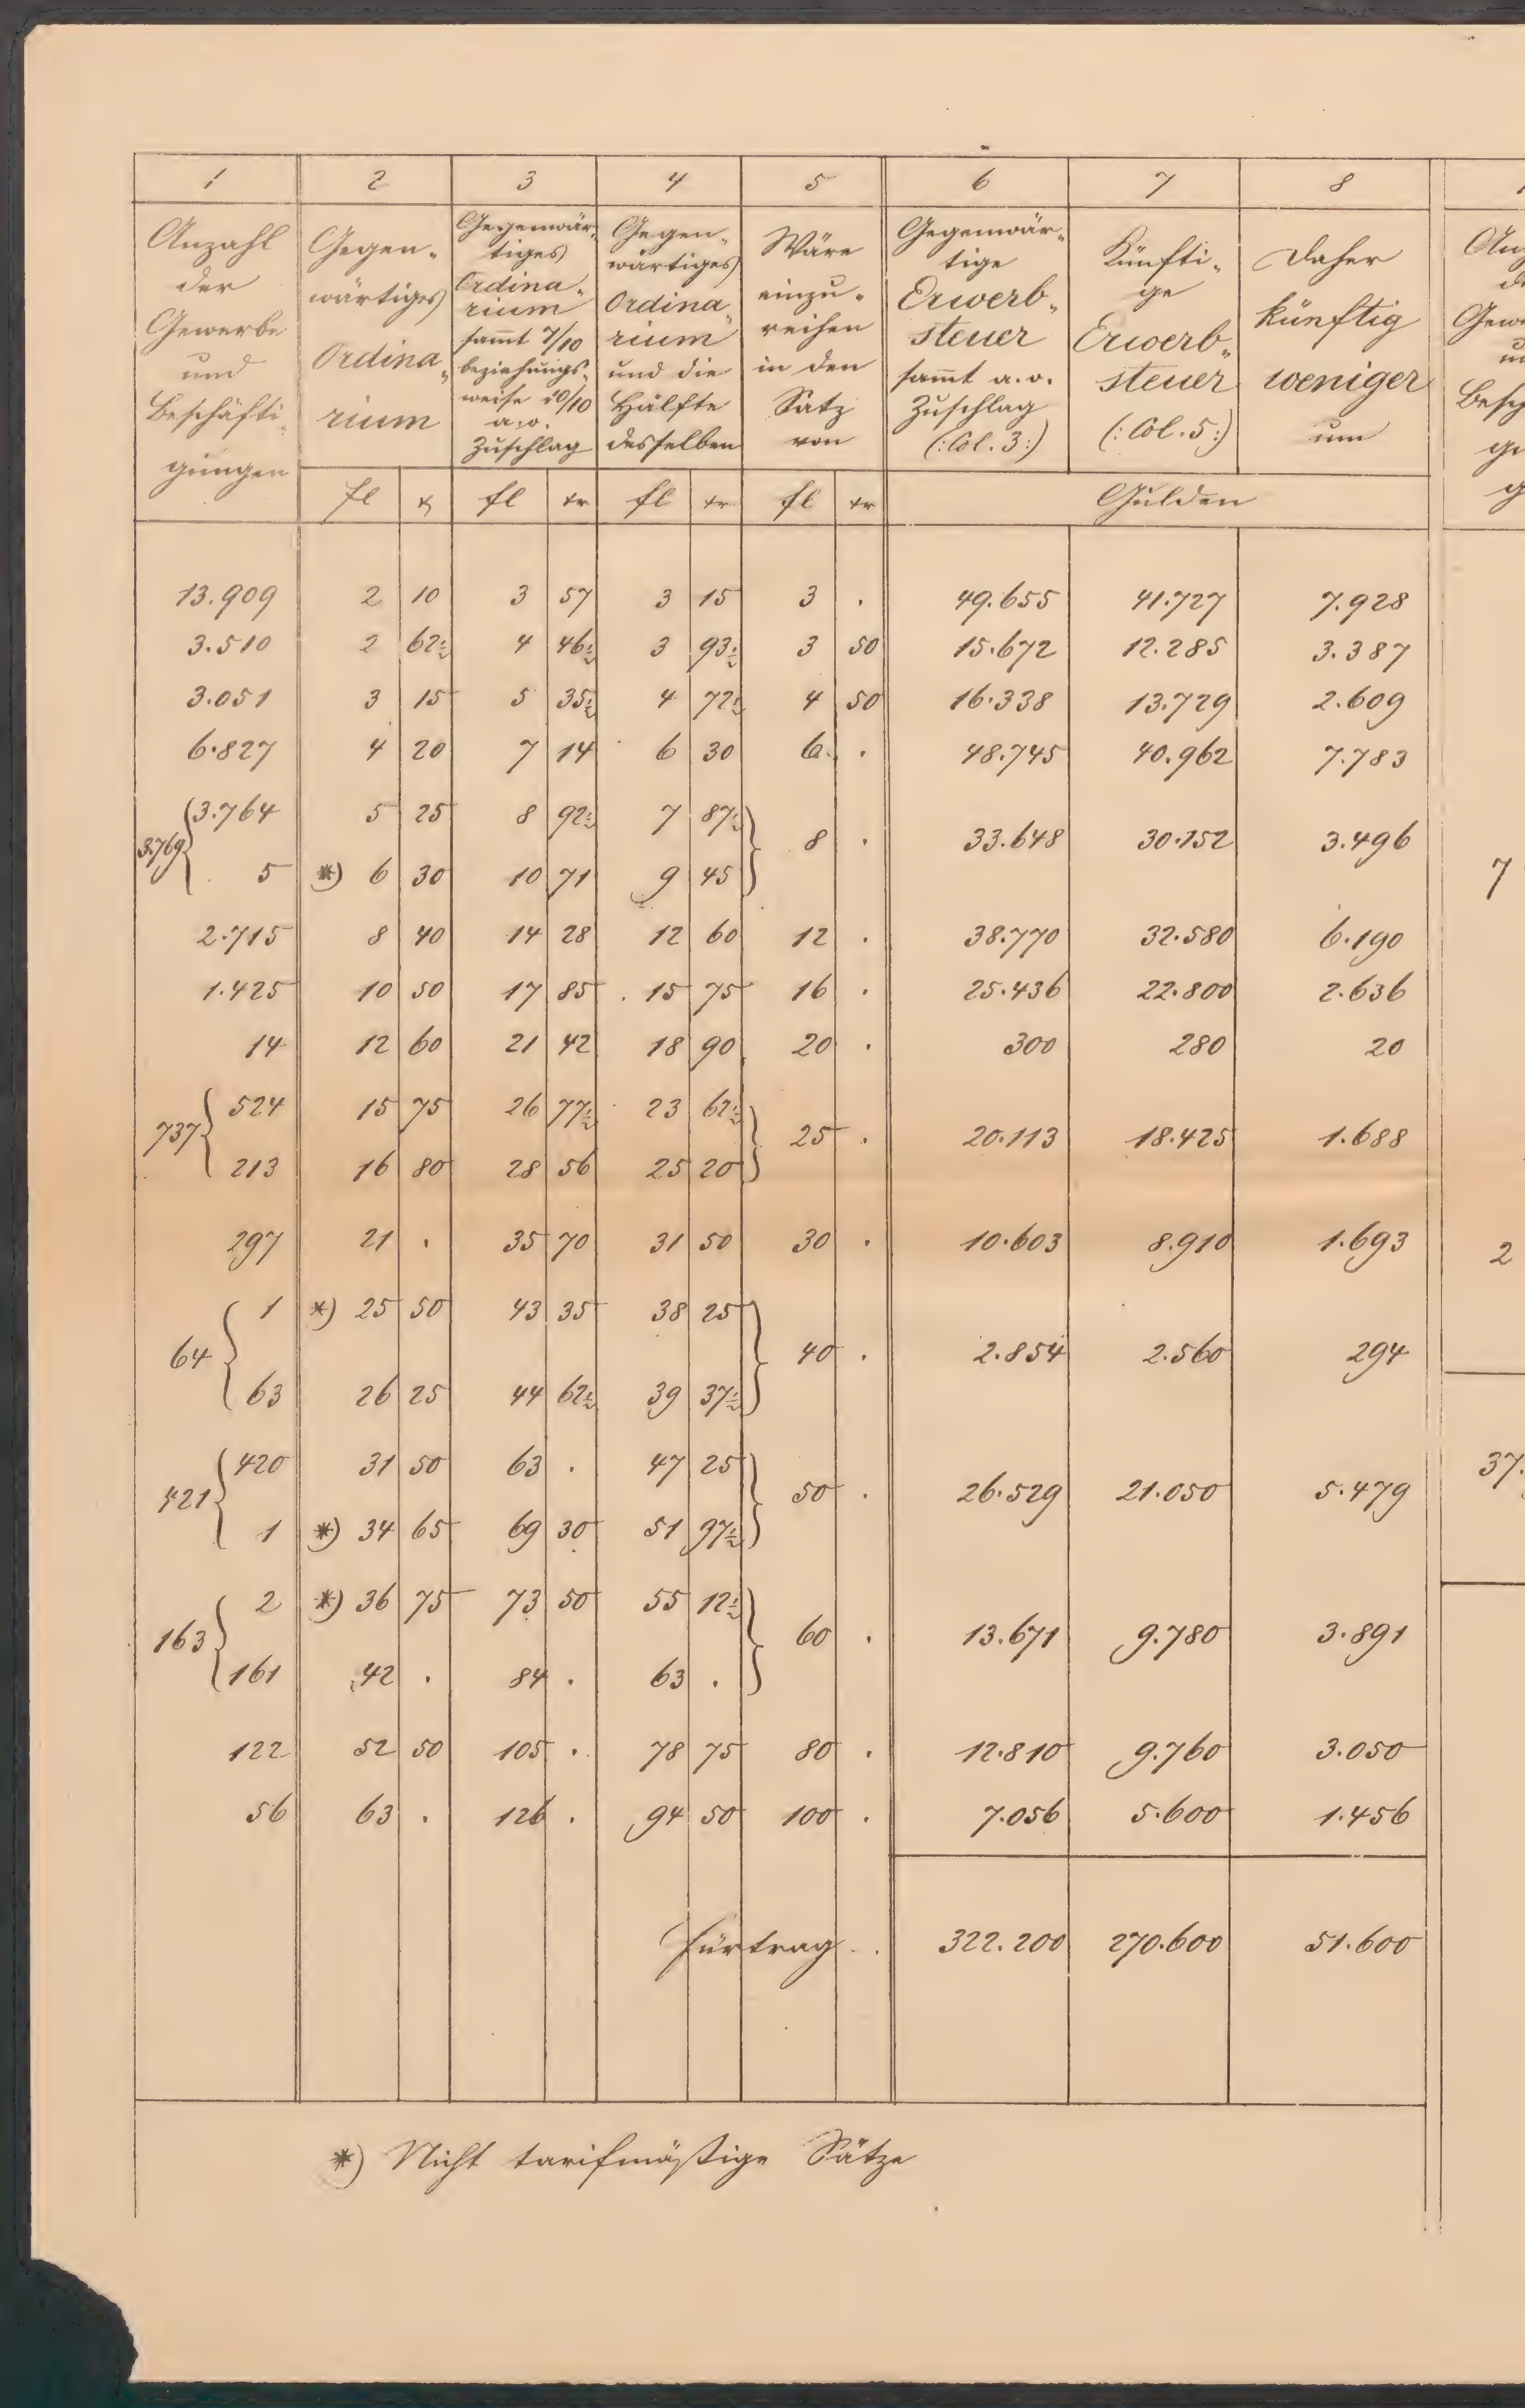 1 2 3 4 5 6 7 8
Anzahl der Gewerbe und Beschäfti- gungen
Gegen- wärtiges Ordina- rium
Gegenwär- tiges Ordina- rium sammt 7/10 beziehungs- weise 10/10 a.o. Zuschlag
Gegen- wärtiges Ordina- rium und die Hälfte desselben
Wäre einzu- reihen in den Satz von
Gegenwär- tige Erwerb- steuer sammt a.o. Zuschlag (: Col. 3 :)
Künfti- ge Erwerb- steuer (: Col. 5 :)
Daher künftig weniger um
fl x fl xr fl xr fl xr Gulden
13.909 2 10 3 57 3 15 3 . 49.655 41.727 7.928
3.510 2 62½ 4 46½ 3 93½ 3 50 15.672 12.285 3.387
3.051 3 15 5 35½ 4 72½ 4 50 16.338 13.729 2.609
6.827 4 20 7 14 6 30 6 . 48.745 40.962 7.783
3.764 5 25 8 92½ 7 87½
3.769 8 . 33.648 30.152 3.496
5 *) 6 30 10 71 9 45
2.715 8 40 14 28 12 60 12 . 38.770 32.580 6.190
1.425 10 50 17 85 15 75 16 . 25.436 22.800 2.636
14 12 60 21 42 18 90 20 . 300 280 20
524 15 75 26 77½ 23 62½
737 25 . 20.113 18.425 1.688
213 16 80 28 56 25 20
297 21 . 35 70 31 50 30 . 10.603 8.910 1.693
1 *) 25 50 43 35 38 25
64 40 . 2.854 2.560 294
63 26 25 44 62½ 39 37½
420 31 50 63 . 47 25
421 50 . 26.529 21.050 5.479
1 *) 34 65 69 30 51 97½
2 *) 36 75 73 50 55 12½
163 60 . 13.671 9.780 3.891
161 42 . 84 . 63 .
122 52 50 105 . 78 75 80 . 12.810 9.760 3.050
56 63 . 126 . 94 50 100 . 7.056 5.600 1.456
Fürtrag . . 322.200 270.600 51.600
*) Nicht tarifmäßige Sätze
7
2
37.